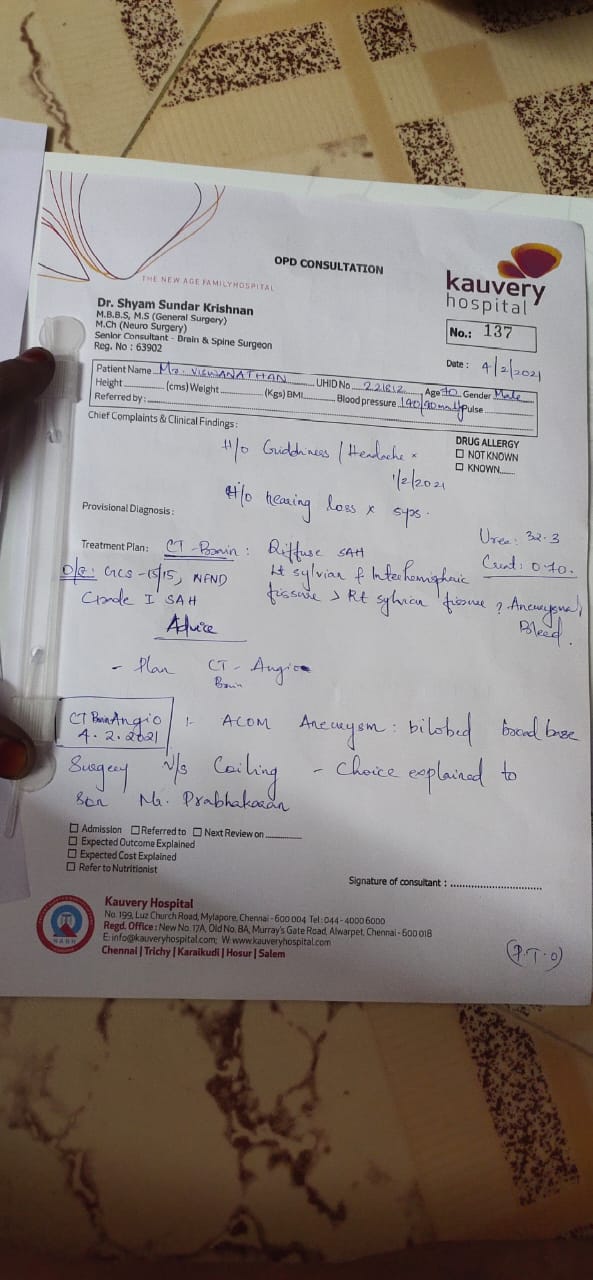 OPD CONSULTATION
THE NEW AGE FAMILY HOSPITAL
kauvery
hospital
No.: 137
Dr. Shyam Sundar Krishnan
M.B.B.S, M.S (General Surgery)
M.Ch (Neuro Surgery)
Senior Consultant - Brain & Spine Surgeon
Reg. No : 63902
Date : 4/2/2021
Patient Name Mr. VISWANATHAN UHID No 221812 Age 70 Gender Male
Height (cms) Weight (Kgs) BMI Blood pressure 140/90 mmHg Pulse
Referred by :
Chief Complaints & Clinical Findings :
DRUG ALLERGY
NOT KNOWN
KNOWN
H/o Giddiness / Headache x
1/2/2021
H/o hearing loss x 5yrs.
Provisional Diagnosis :
Urea: 32.3
Creat: 0.70.
Treatment Plan : CT-Brain : Diffuse SAH
O/E: GCS-15/15, NFND Lt sylvian & Interhemispheric
Grade I SAH fissure > Rt sylvian fissure ? Aneurysmal
Bleed.
Advice
- Plan CT - Angio
Brain
CT Brain Angio :- ACOM Aneurysm : bilobed broad base
4.2.2021
Surgery v/s Coiling - Choice explained to
Son Mr. Prabhakaran
Admission Referred to Next Review on
Expected Outcome Explained
Expected Cost Explained
Refer to Nutritionist
Signature of consultant :
NABH
Kauvery Hospital
No. 199, Luz Church Road, Mylapore, Chennai - 600 004 Tel : 044 - 4000 6000
Regd. Office : New No. 17A, Old No. 8A, Murray's Gate Road, Alwarpet, Chennai - 600 018
E: info@kauveryhospital.com; W www.kauveryhospital.com
Chennai | Trichy | Karaikudi | Hosur | Salem
(P.T.O)